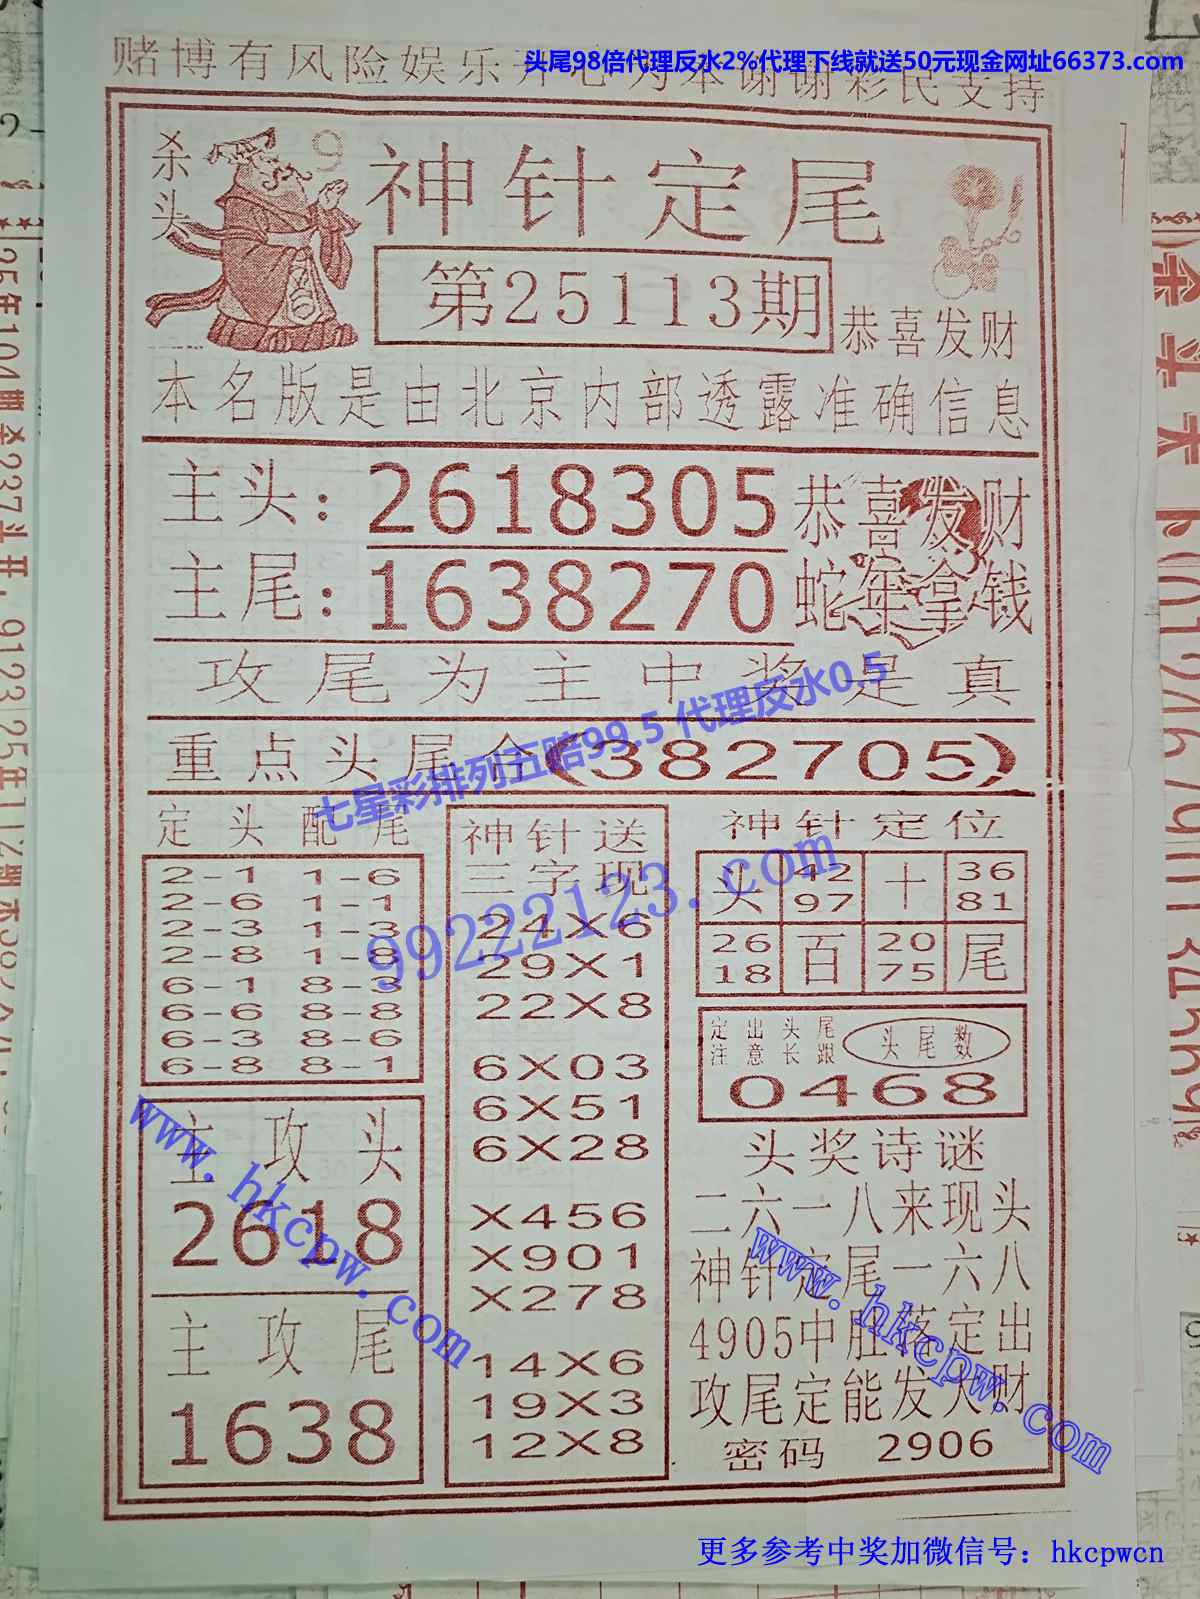 头尾98倍代理反水2%代理下线就送50元现金网址66373.com
赌博有风险娱乐开心为本谢谢彩民支持
杀头
9
神针定尾
第25113期
恭喜发财
本名版是由北京内部透露准确信息
主头：2618305
恭喜发财
主尾：1638270
蛇年拿钱
攻尾为主中奖是真
七星彩排列五赔99.5 代理反水0.5
重点头尾合(382705)
定头配尾
2-1 1-6
2-6 1-1
2-3 1-3
2-8 1-8
6-1 8-3
6-6 8-8
6-3 8-6
6-8 8-1
主攻头
2618
主攻尾
1638
神针送
三字现
24X6
29X1
22X8
6X03
6X51
6X28
X456
X901
X278
14X6
19X3
12X8
99222123.com
神针定位
头 42 97 十 36 81
26 18 百 20 75 尾
定出头尾
注意长跟
头尾数
0468
头奖诗谜
二六一八来现头
神针定尾一六八
4905中肚落定出
攻尾定能发大财
密码 2906
www.hkcpw.com
www.hkcpw.com
更多参考中奖加微信号：hkcpwcn